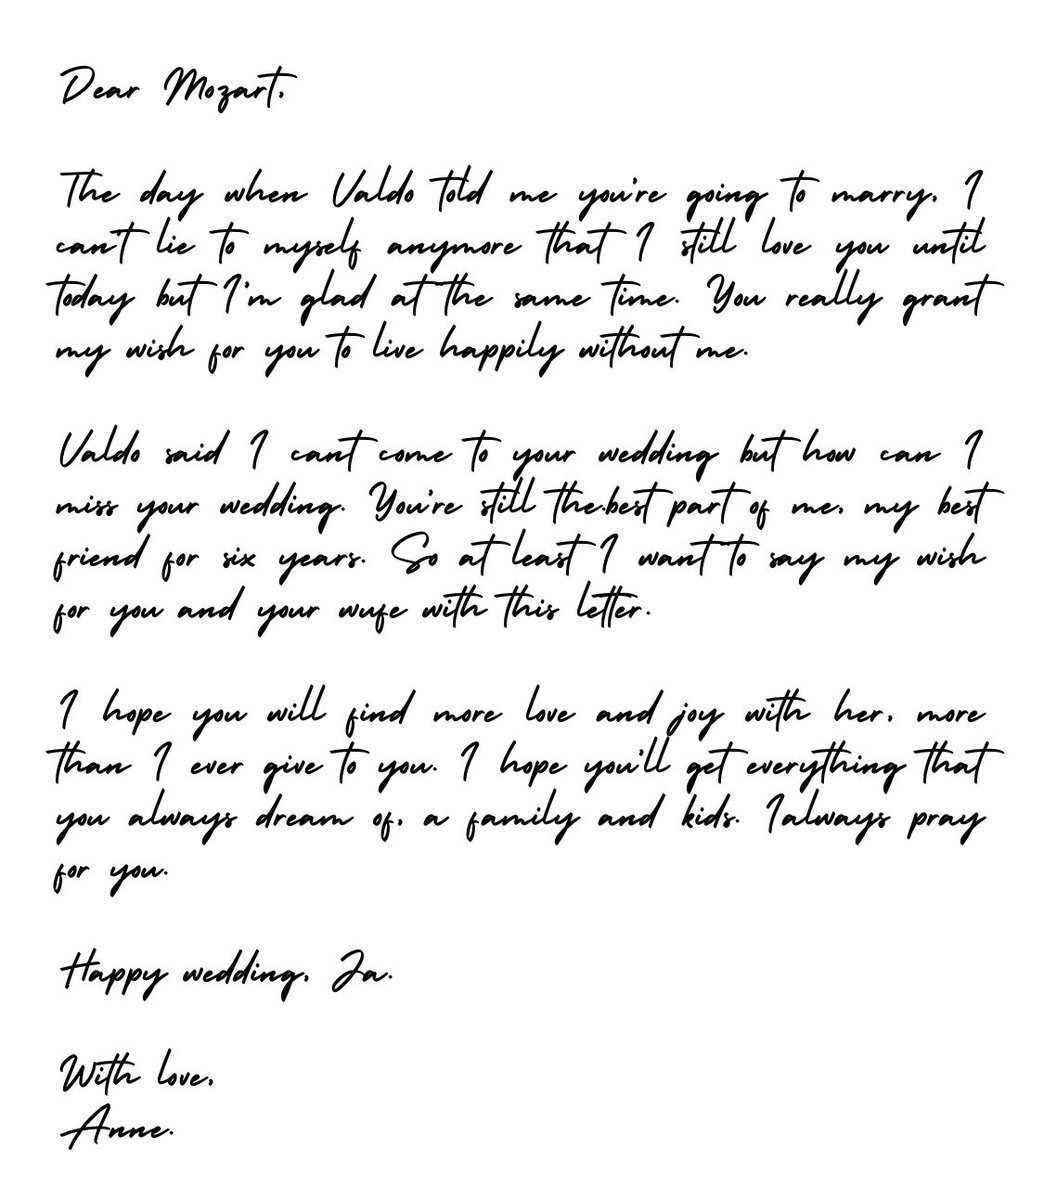 Dear Mozart,
The day when Valdo told me you're going to marry, I
can't lie to myself anymore that I still love you until
today but I'm glad at the same time. You really grant
my wish for you to live happily without me.
Valdo said I cant come to your wedding but how can I
miss your wedding. You're still the.best part of me, my best
friend for six years. So at least I want to say my wish
for you and your wufe with this letter.
I hope you will find more love and joy with her, more
than I ever give to you. I hope you'll get everything that
you always dream of, a family and kids. Ialways pray
for you.
Happy wedding, Ja.
With love,
Anne.